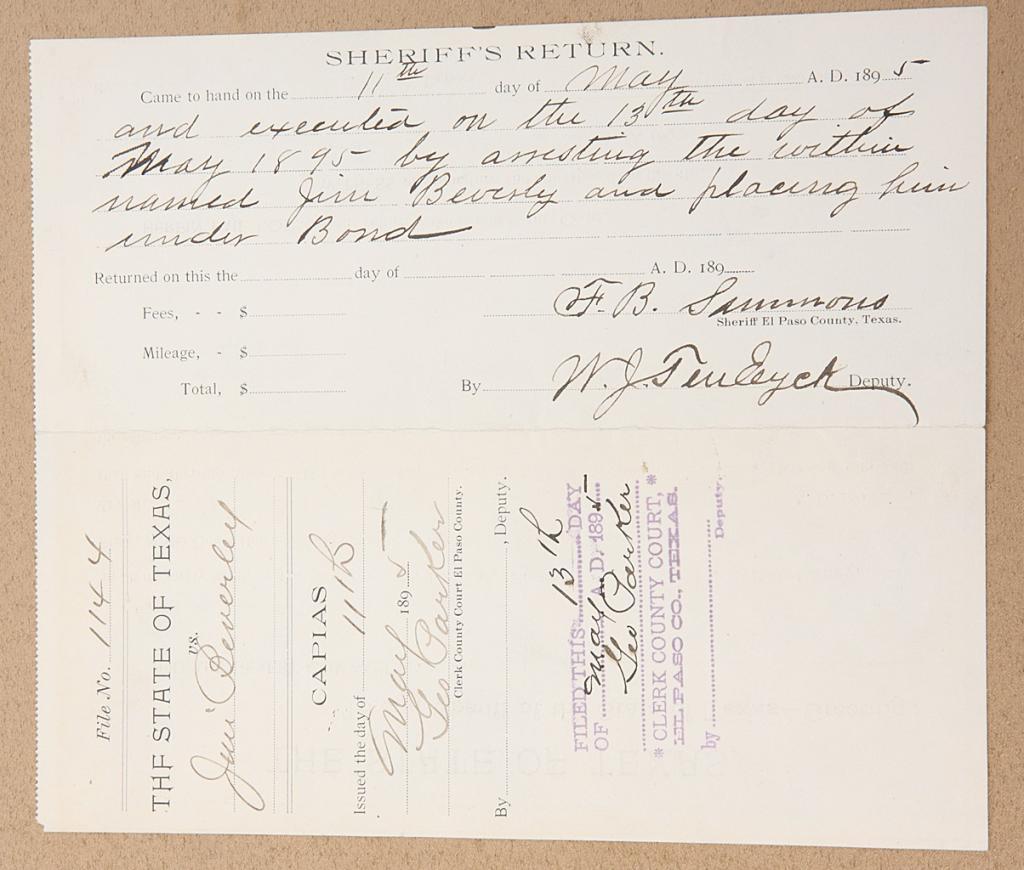 SHERIFF'S RETURN.
Came to hand on the 11th day of May A. D. 1895
and executed on the 13th day of
May 1895 by arresting the within
named Jim Beverly and placing him
under Bond
Returned on this the day of A. D. 189
Fees, - - $
F. B. Simmons
Sheriff El Paso County, Texas.
Mileage, - $
Total, $
By W. J. Ten Eyck Deputy.
File No. 1144
THE STATE OF TEXAS,
vs.
Jim Beverley
CAPIAS
Issued the day of 11th
May 1895
Geo Parker
Clerk County Court El Paso County.
By , Deputy.
FILED THIS 13th DAY
OF May A. D. 1895
Geo Parker
* CLERK COUNTY COURT, *
EL PASO CO., TEXAS.
by
Deputy.